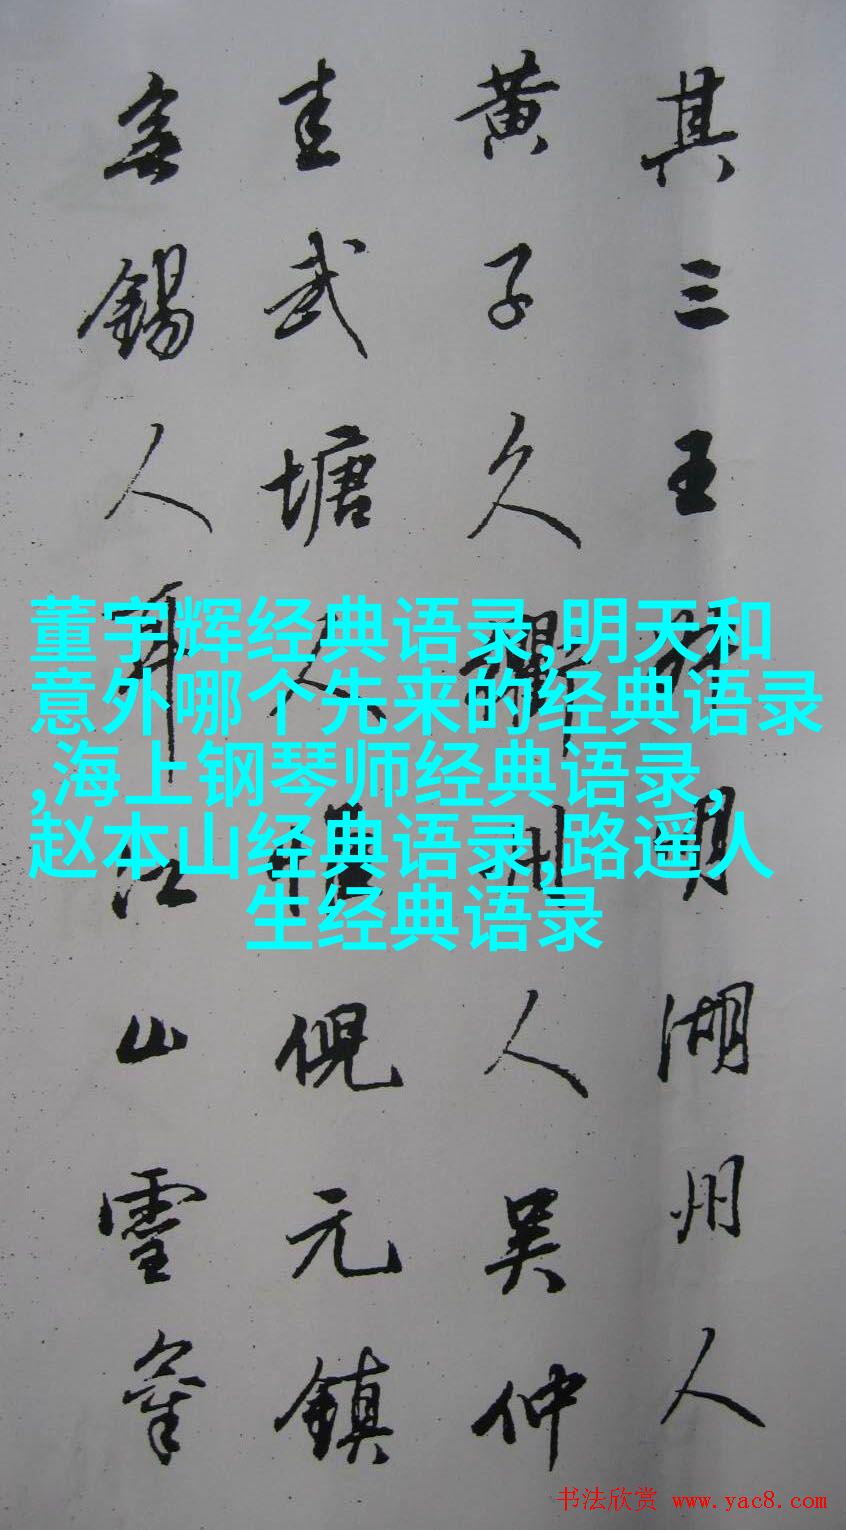 其三王叔明湖州人
黄子久衢州人吴仲
圭武塘人惟倪元鎮
無錫人耳江山靈氣
董宇辉经典语录,明天和
意外哪个先来的经典语录
,海上钢琴师经典语录,
赵本山经典语录,路遥人
生经典语录
书法欣赏 www.yac8.com